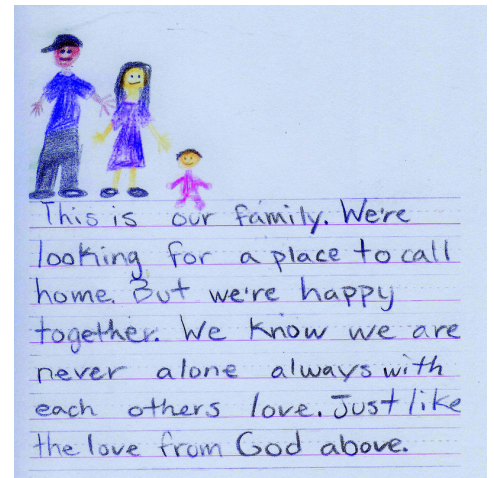 This is our family. We're
looking for a place to call
home. But we're happy
together. We know we are
never alone always with
each others love. Just like
the love from God above.